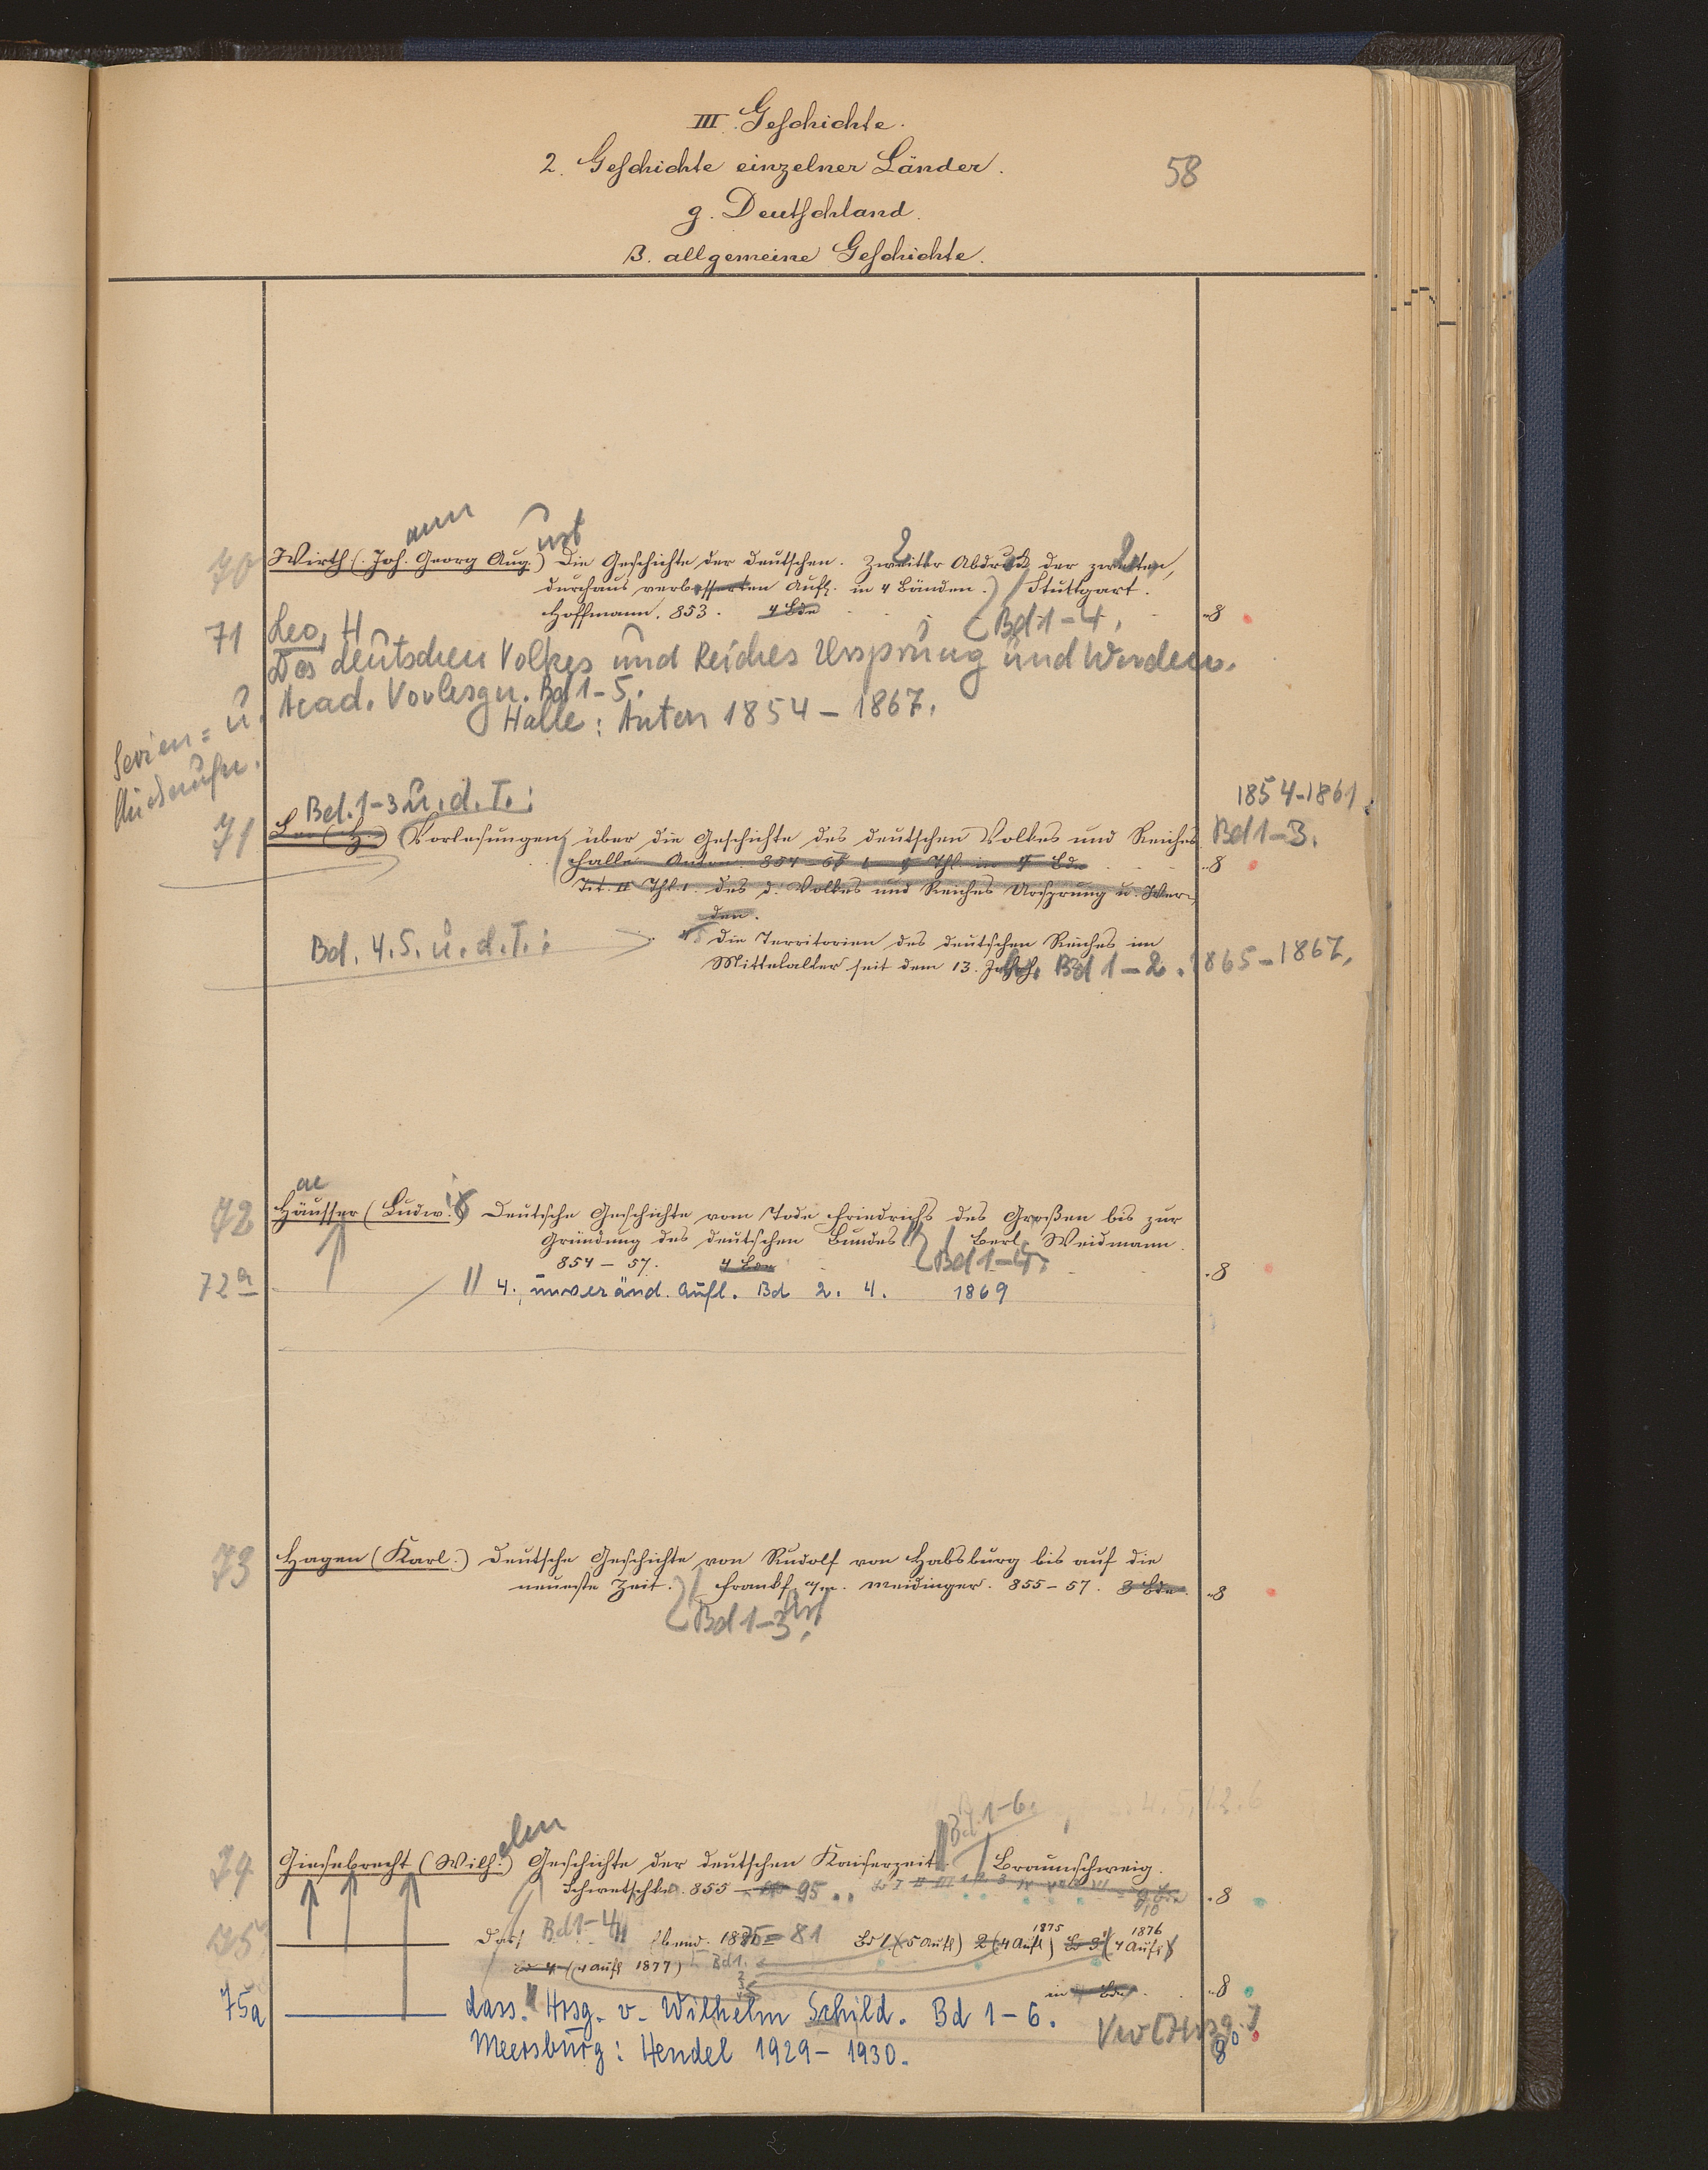 III. Geschichte.
2. Geschichte einzelner Länder.
58
g. Deutschland.
B. allgemeine Geschichte.
ann
ust
70 Wirth (Joh. Georg Aug.) Die Geschichte der Deutschen. Zweiter Abdruck der zweiten,
durchaus verbesserten Aufl. in 4 Bänden. Stuttgart.
Hoffmann. 853. 4 Bde Bd 1-4. 8
71 Leo, H
Des deutschen Volkes und Reiches Ursprung und Werden.
Acad. Vorlesgn. Bd 1-5.
Halle: Anton 1854-1867.
Serien= u.
Bd. 1-3 u. d. T.:
1854-1861
71 Leo (H.) Vorlesungen über die Geschichte des deutschen Volkes und Reiches Bd 1-3.
Halle Anton 854 8
Tit. Thl 1. des d. Volkes und Reiches Ursprung u. Wer-
den.
Bd. 4.5. u. d. T.: Die Territorien des deutschen Reiches im
Mittelalter seit dem 13. Jahrh. Bd 1-2. 1865-1867.
72 Häusser (Ludw.) Deutsche Geschichte vom Tode Friedrichs des Großen bis zur
Gründung des deutschen Bundes. Berl. Weidmann.
854-57. 4 Bde Bd 1-4. 8
72a 4., unveränd. Aufl. Bd 2. 4. 1869
73 Hagen (Karl.) Deutsche Geschichte von Rudolf von Habsburg bis auf die
neueste Zeit. Frankf. a/m. Meidinger. 855-57. 3 Bde 8
Bd 1-3
Bd. 1-6.
elm
74 Giesebrecht (Wilh.) Geschichte der deutschen Kaiserzeit. Braunschweig.
Schwetschke. 855 95. 8
75 Dass Bd 1-4 Ebend. 81 Bd 1 (5 Aufl) 2 (4 Aufl) 1875 Bd 3 (4 Aufl) 1876
Bd 4 (4 Aufl 1877) Bd 1.
in Bde. 8
75a dass. Hrsg. v. Wilhelm Schild. Bd 1-6.
Meersburg: Hendel 1929-1930.
Vw [Hrsg.]
8°